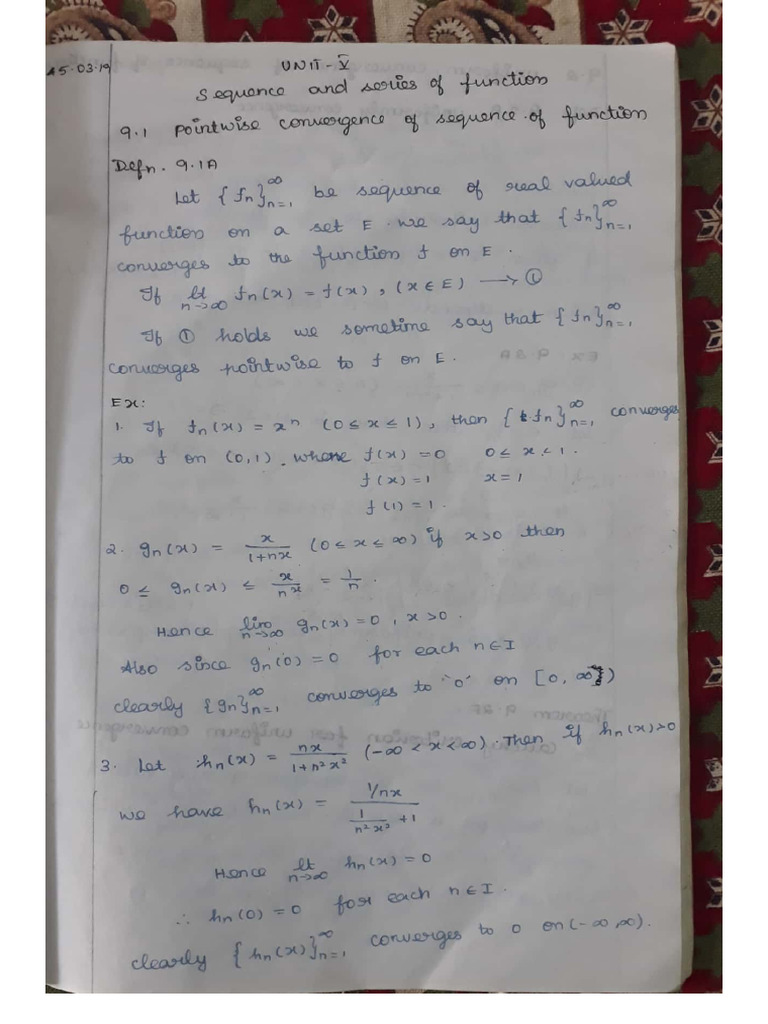 25.03.19
UNIT - V
Sequence and series of function
9.1 Pointwise convergence of sequence of function
Defn. 9.1A
Let {fn}∞n=1 be sequence of real valued
function on a set E. we say that {fn}∞n=1
converges to the function f on E.
If lt n→∞ fn(x) = f(x), (x ∈ E) → ①
If ① holds we sometime say that {fn}∞n=1
converges pointwise to f on E.
Ex:
1. If fn(x) = xⁿ (0 ≤ x ≤ 1), then {fn}∞n=1 converges
to f on (0,1). where f(x) = 0 0 ≤ x < 1.
f(x) = 1 x = 1
f(1) = 1.
2. gn(x) = x/(1+nx) (0 ≤ x ≤ ∞) if x>0 then
0 ≤ gn(x) ≤ x/nx = 1/n.
Hence lim n→∞ gn(x) = 0, x > 0.
Also since gn(0) = 0 for each n ∈ I
clearly {gn}∞n=1 converges to "0" on [0, ∞)
3. Let hn(x) = nx/(1+n²x²) (-∞ < x < ∞). Then if hn(x)>0
we have hn(x) = (1/nx)/(1/n²x² + 1)
Hence lt n→∞ hn(x) = 0
∴ hn(0) = 0 for each n ∈ I.
clearly {hn(x)}∞n=1 converges to 0 on (-∞, ∞).